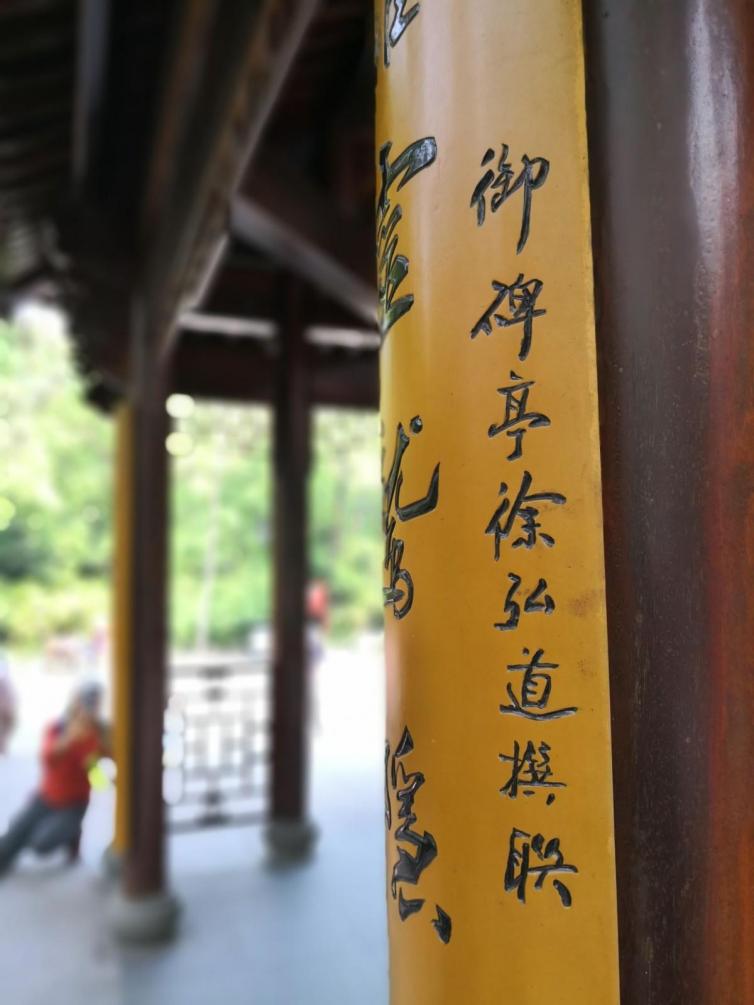 御碑亭徐弘道撰联
鹫隐